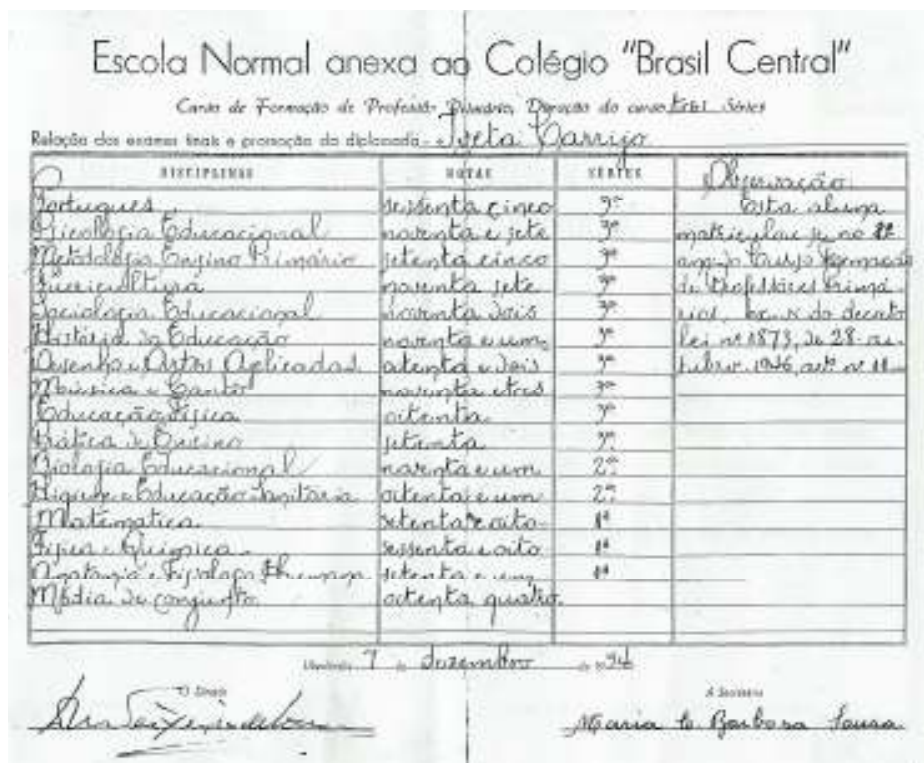 Escola Normal anexa ao Colégio "Brasil Central"
Curso de Formação de Professor Primário, Duração do curso três Séries
Relação dos exames finais e promoção da diplomada - Carrijo
DISCIPLINAS NOTAS SÉRIES Observação
Português sessenta cinco 3ª Esta aluna
Psicologia Educacional noventa e sete 3ª matriculou-se no
Metodologia Ensino Primário setenta cinco 3ª Curso Formação
Puericultura noventa sete 3ª de Professores Primá
Sociologia Educacional noventa dois 3ª rios, do decreto
História da Educação noventa e um 3ª lei nº 1873, de 28 ou
Desenho e Artes Aplicadas oitenta e dois 3ª tubro 1946, artº nº 11
Música e Canto noventa e três 3ª
Educação Física oitenta 3ª
Prática de Ensino setenta 3ª
Biologia Educacional noventa e um 2ª
Higiene e Educação Sanitária oitenta e um 2ª
Matemática setenta e oito 1ª
Física e Química sessenta e oito 1ª
Anatomia e Fisiologia Humana setenta e um 1ª
Média de conjunto oitenta quatro.
7 de dezembro de 19
A Secretária
Maria Barbosa Sousa